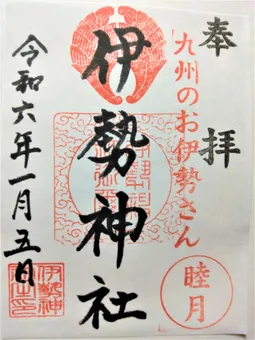 奉拝
「九州のお伊勢さん」
睦月
伊勢神社
令和六年一月五日